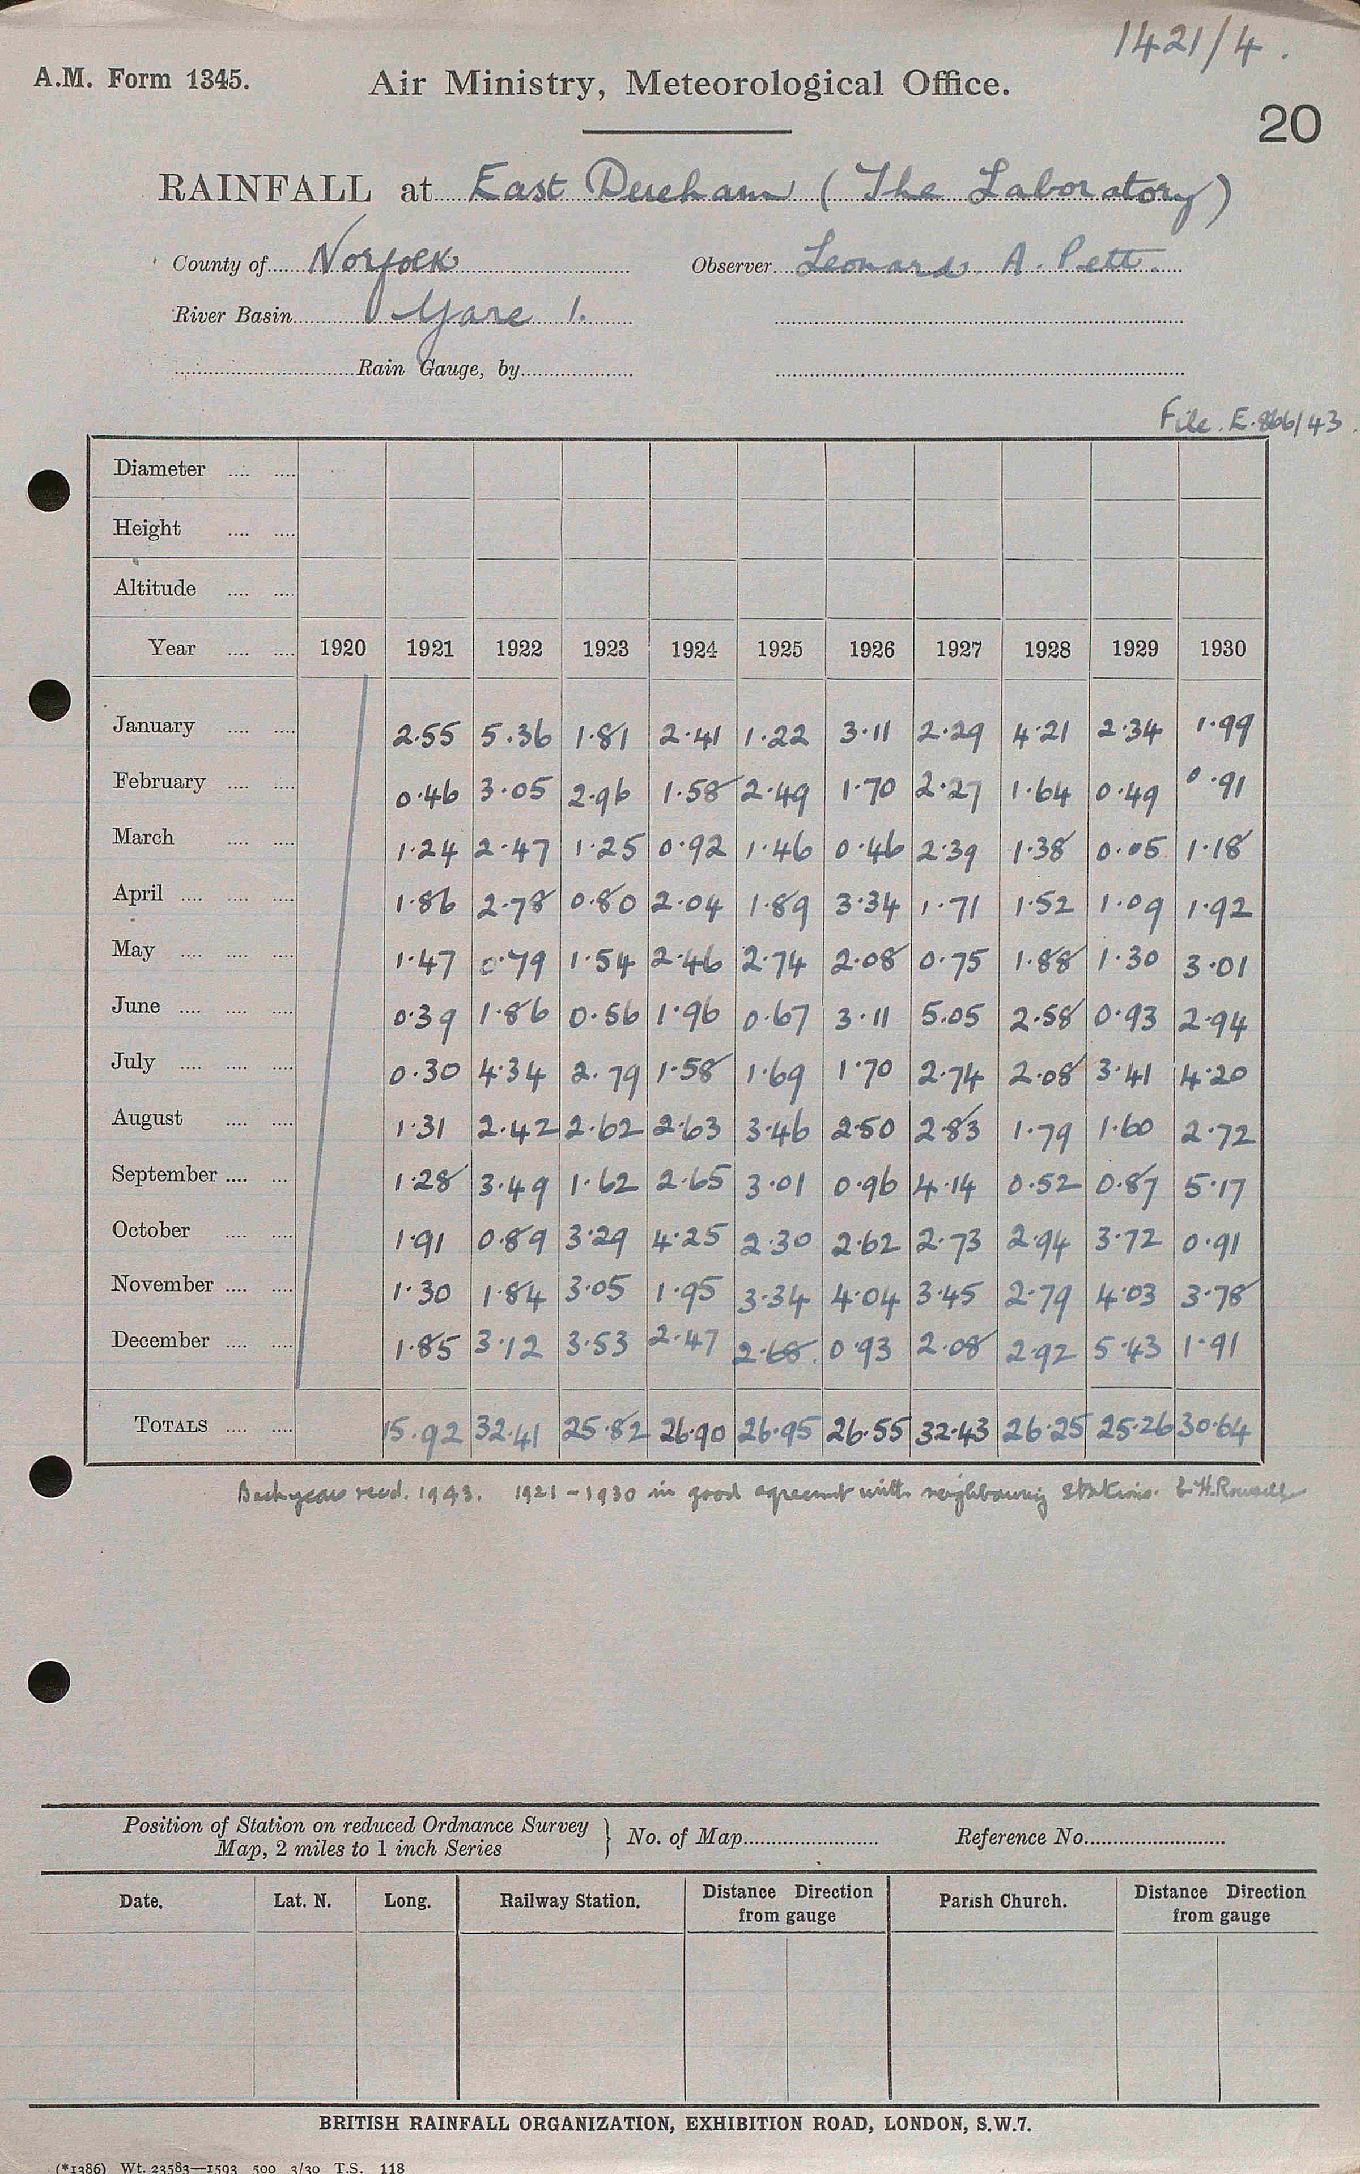 1421/4.
A.M. Form 1345. Air Ministry, Meteorological Office.
20
RAINFALL at East Dereham (The Laboratory)
County of Norfolk Observer Leonard A. Pett.
River Basin Yare 1.
Rain Gauge, by
File. E.866/43
Diameter
Height
Altitude
Year 1920 1921 1922 1923 1924 1925 1926 1927 1928 1929 1930
January 2.55 5.36 1.81 2.41 1.22 3.11 2.29 4.21 2.34 1.99
February 0.46 3.05 2.96 1.58 2.49 1.70 2.27 1.64 0.49 0.91
March 1.24 2.47 1.25 0.92 1.46 0.46 2.39 1.38 0.05 1.18
April 1.86 2.78 0.80 2.04 1.89 3.34 1.71 1.52 1.09 1.92
May 1.47 0.79 1.54 2.46 2.74 2.08 0.75 1.88 1.30 3.01
June 0.39 1.86 0.56 1.96 0.67 3.11 5.05 2.58 0.93 2.94
July 0.30 4.34 2.79 1.58 1.69 1.70 2.74 2.08 3.41 4.20
August 1.31 2.42 2.62 2.63 3.46 2.50 2.83 1.79 1.60 2.72
September 1.28 3.49 1.62 2.65 3.01 0.96 4.14 0.52 0.87 5.17
October 1.91 0.89 3.29 4.25 2.30 2.62 2.73 2.94 3.72 0.91
November 1.30 1.84 3.05 1.95 3.34 4.04 3.45 2.79 4.03 3.78
December 1.85 3.12 3.53 2.47 2.68 0.93 2.08 2.92 5.43 1.91
TOTALS 15.92 32.41 25.82 26.90 26.95 26.55 32.43 26.25 25.26 30.64
Back years recd. 1943. 1921-1930 in good agreement with neighbouring stations.
Position of Station on reduced Ordnance Survey
Map, 2 miles to 1 inch Series } No. of Map Reference No.
Date. Lat. N. Long. Railway Station. Distance Direction from gauge Parish Church. Distance Direction from gauge
BRITISH RAINFALL ORGANIZATION, EXHIBITION ROAD, LONDON, S.W.7.
(*1386) Wt. 23583—1593 500 3/30 T.S. 118